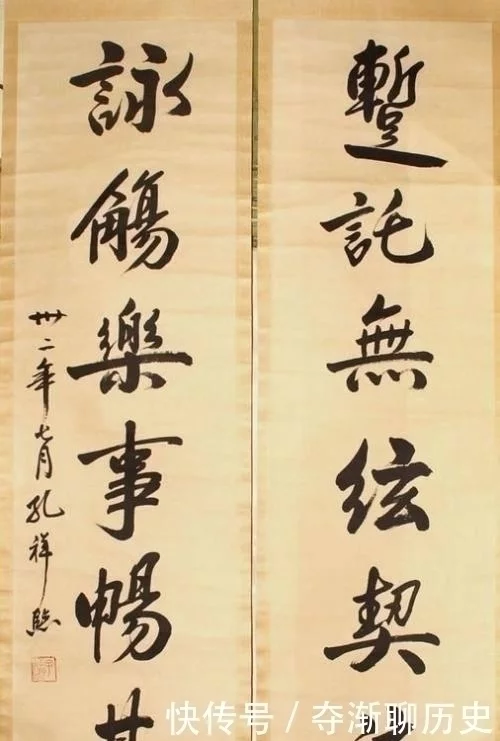 蹔託無絃契
詠觴樂事暢
卅二年七月孔祥熙
快传号 / 夺渐聊历史